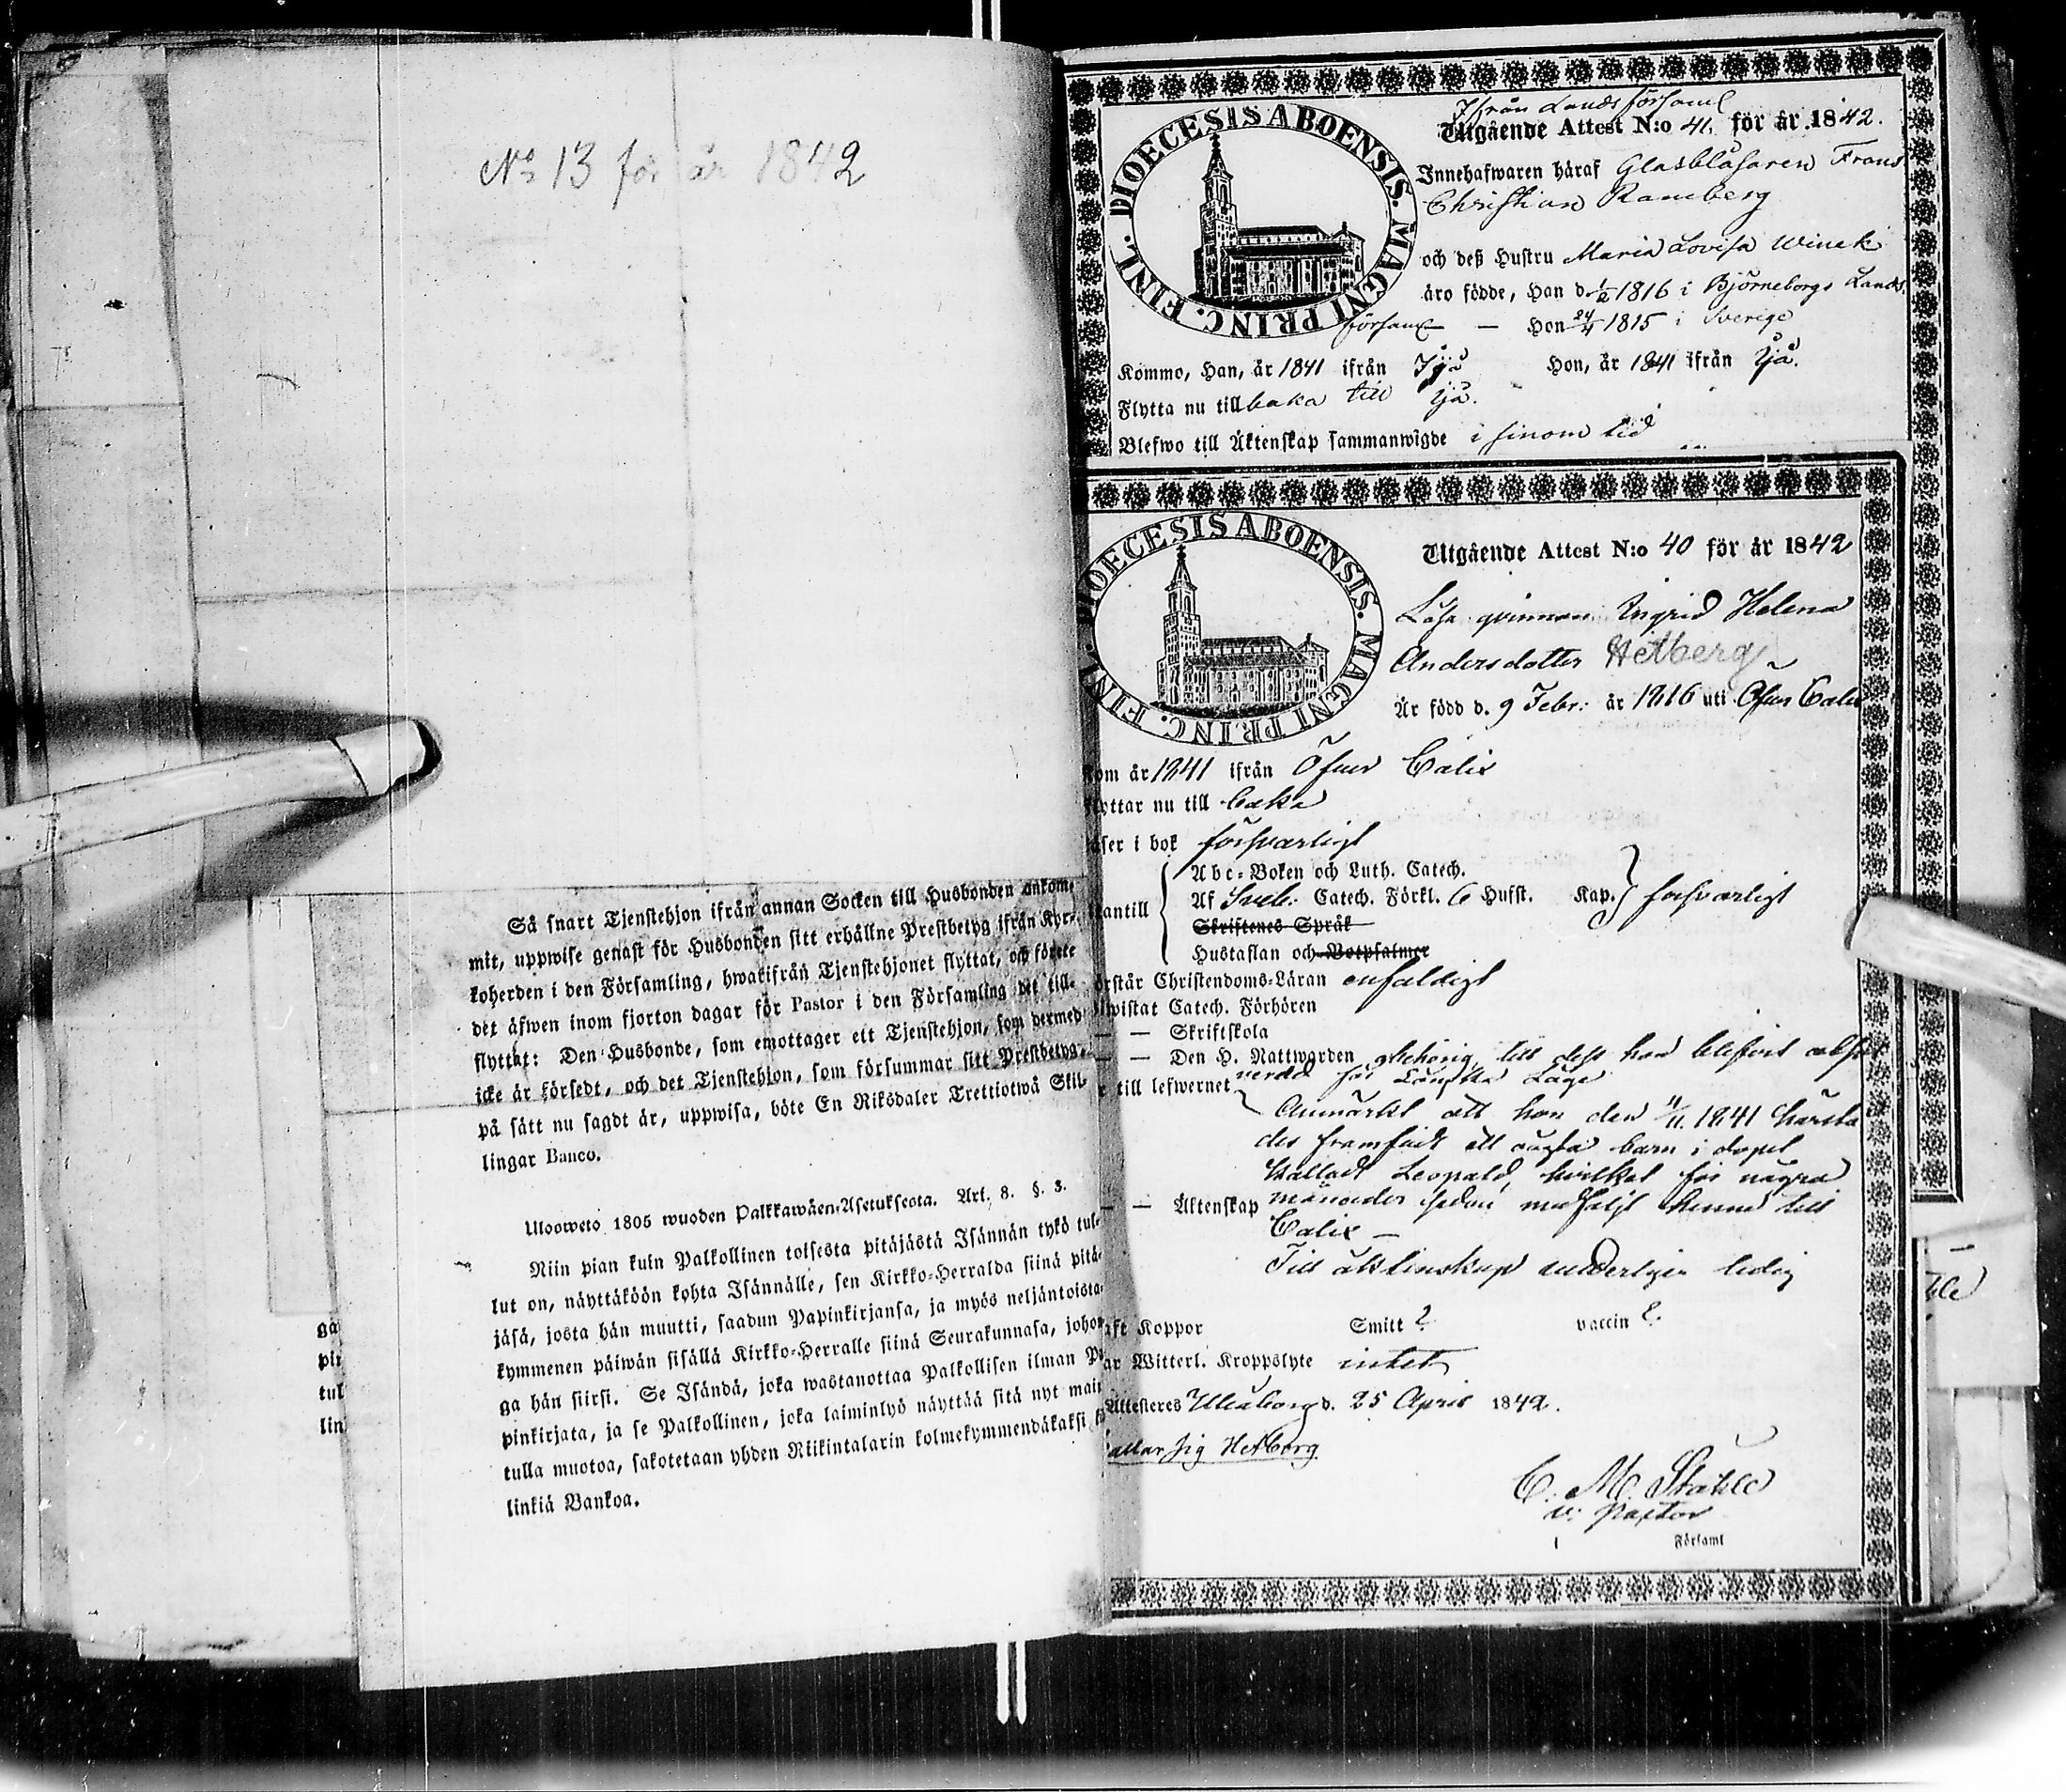 No 13 för år 1842
Så snart Tjenstehjon ifrån annan Socken till Husbonden ankom-
mit, uppwise genast för Husbonden sitt erhållne Prestbetyg ifrån Kyr-
koherden i den Församling, hwarifrån Tjenstehjonet flyttat, och förete
det äfwen inom fjorton dagar för Pastor i den Församling det till-
flyttat: Den Husbonde, som emottager ett Tjenstehjon, som dermed
icke är försedt, och det Tjenstehjon, som försummar sitt Prestbetyg,
på sätt nu sagdt är, uppwisa, böte En Riksdaler Trettiotwå Skil-
lingar Banco.
Uloswető 1805 wuoden Palkkawäen-Asetuksesta. Art. 8. §. 3.
Niin pian kuin Palkollinen toisesta pitäjästä Isännän tykö tul-
lut on, näyttäköön kohta Isännälle, sen Kirkko-Herralda siinä pitä-
jäsä, josta hän muutti, saadun Papinkirjansa, ja myös neljäntoista-
kymmenen päiwän sisällä Kirkko-Herralle siinä Seurakunnasa, johon-
ga hän siirsi. Se Isändä, joka wastanottaa Palkollisen ilman Pa-
pinkirjata, ja se Palkollinen, joka laiminlyö näyttää sitä nyt mai-
tulla muotoa, sakotetaan yhden Riikintalarin kolmekymmendäkaksi
linkiä Bankoa.
ga
pin
tul
lin
DIOECESIS ABOENSIS. MAGNI PRINC. FINL.
Ifrån Lands församl
Utgående Attest N:o 41. för år 1842.
Innehafwaren häraf Glasblåsaren Frans
Christian Ramberg
och deß Hustru Maria Lovisa Winck
äro födde, Han d. 1/2 1816 i Björneborgs Lands
församl — Hon 24/4 1815 i Sverige
Kommo, Han, år 1841 ifrån Ijo Hon, år 1841 ifrån Ijo.
Flytta nu tillbaka till Ijo.
Blefwo till Äktenskap sammanwigde i sinom tid
DIOECESIS ABOENSIS. MAGNI PRINC. FINL.
Utgående Attest N:o 40 för år 1842
Lösa qvinnan Ingrid Helena
Andersdotter Hetberg
Är född d. 9 Febr: år 1816 uti Öfver Calix
Kom år 1841 ifrån Öfver Calix
Flyttar nu till baka
Läser i bok försvarligt
Abc-Boken och Luth. Catech.
utantill Af Sveb. Catech. Förkl. 6 Hufst. Kap. försvarligt
Skriftenes Språk
Hustaflan och Botpsalmer
Förstår Christendoms-Läran enfaldigt
Bewistat Catech. Förhören
— — Skriftskola
— — Den H. Nattwarden obehörig till dess hon blifvit absol
verad för Lönska Läge
till lefwernet
Anmärkt att hon den 4/11 1841 härsta
des framfödt ett oägta barn i dopet
kalladt Leopold, hvilket för några
— — Äktenskap månader sedan medföljt henne till
Calix —
Till äktenskap ledig
haft Koppor Smitt ? vaccin ?.
Har Witterl. Kroppslyte intet
Attesteres Uleåborg d. 25 April 1842.
Kallar sig Hetberg
C. M. Ståhle
v. Pastor
i Församl